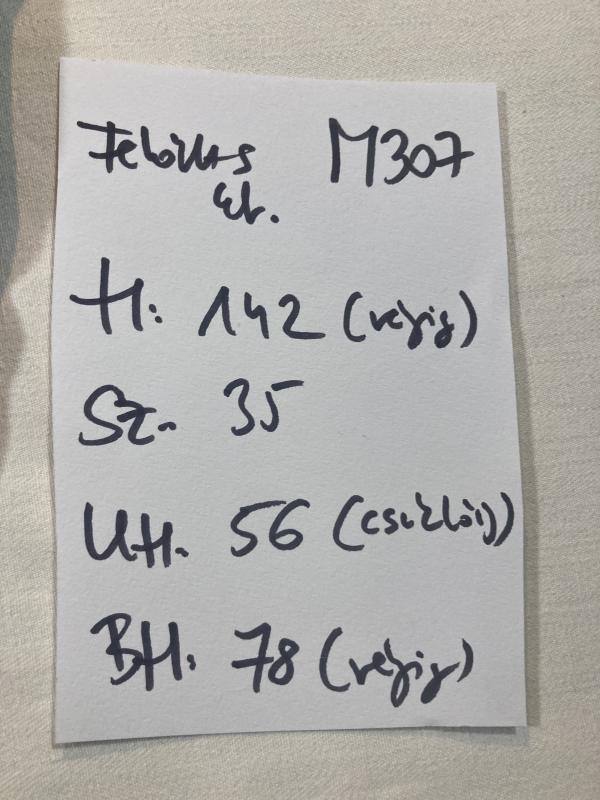 Feloltős M307
Er.
H: 142 (végig)
Sz. 35
UH. 56 (csuklóig)
BH: 78 (végig)